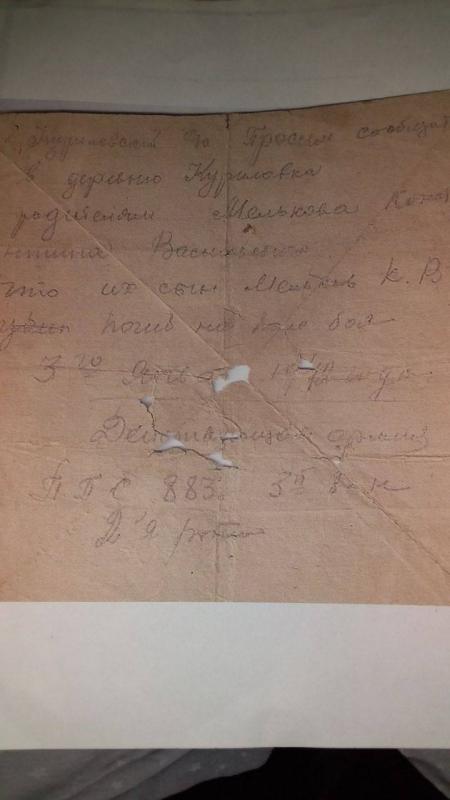 Куриловский Прошу сообщить
в деревню Куриловка
родителям Мелькова Конст
нтина Васильевича
что их сын Мельков К. В
погиб на поле боя
3го Янва 19
Действующая армия
ППС 883 3й
2я рота